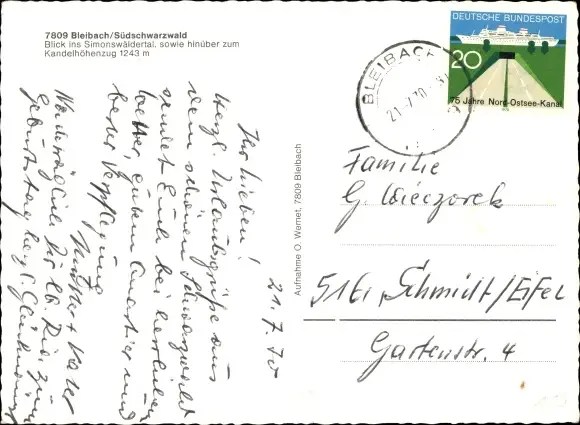 7809 Bleibach/Südschwarzwald
Blick ins Simonswäldertal, sowie hinüber zum
Kandelhöhenzug 1243 m
21.7.70
Ihr Lieben!
Herzl. Urlaubsgrüße aus
dem schönen Schwarzwald
sendet Euch bei herrlichem
Wetter, gutem Quartier und
bester Verpflegung
Mutter + Vater
Nachträglich Dir lb. zum
Geburtstag herzl. Glückwünsche
Aufnahme O. Wernet, 7809 Bleibach
DEUTSCHE BUNDESPOST
20
75 Jahre Nord-Ostsee-Kanal
BLEIBACH
21.-7.70
Familie
G. Wieczorek
516, Schmidt/Eifel
Gartenstr. 4